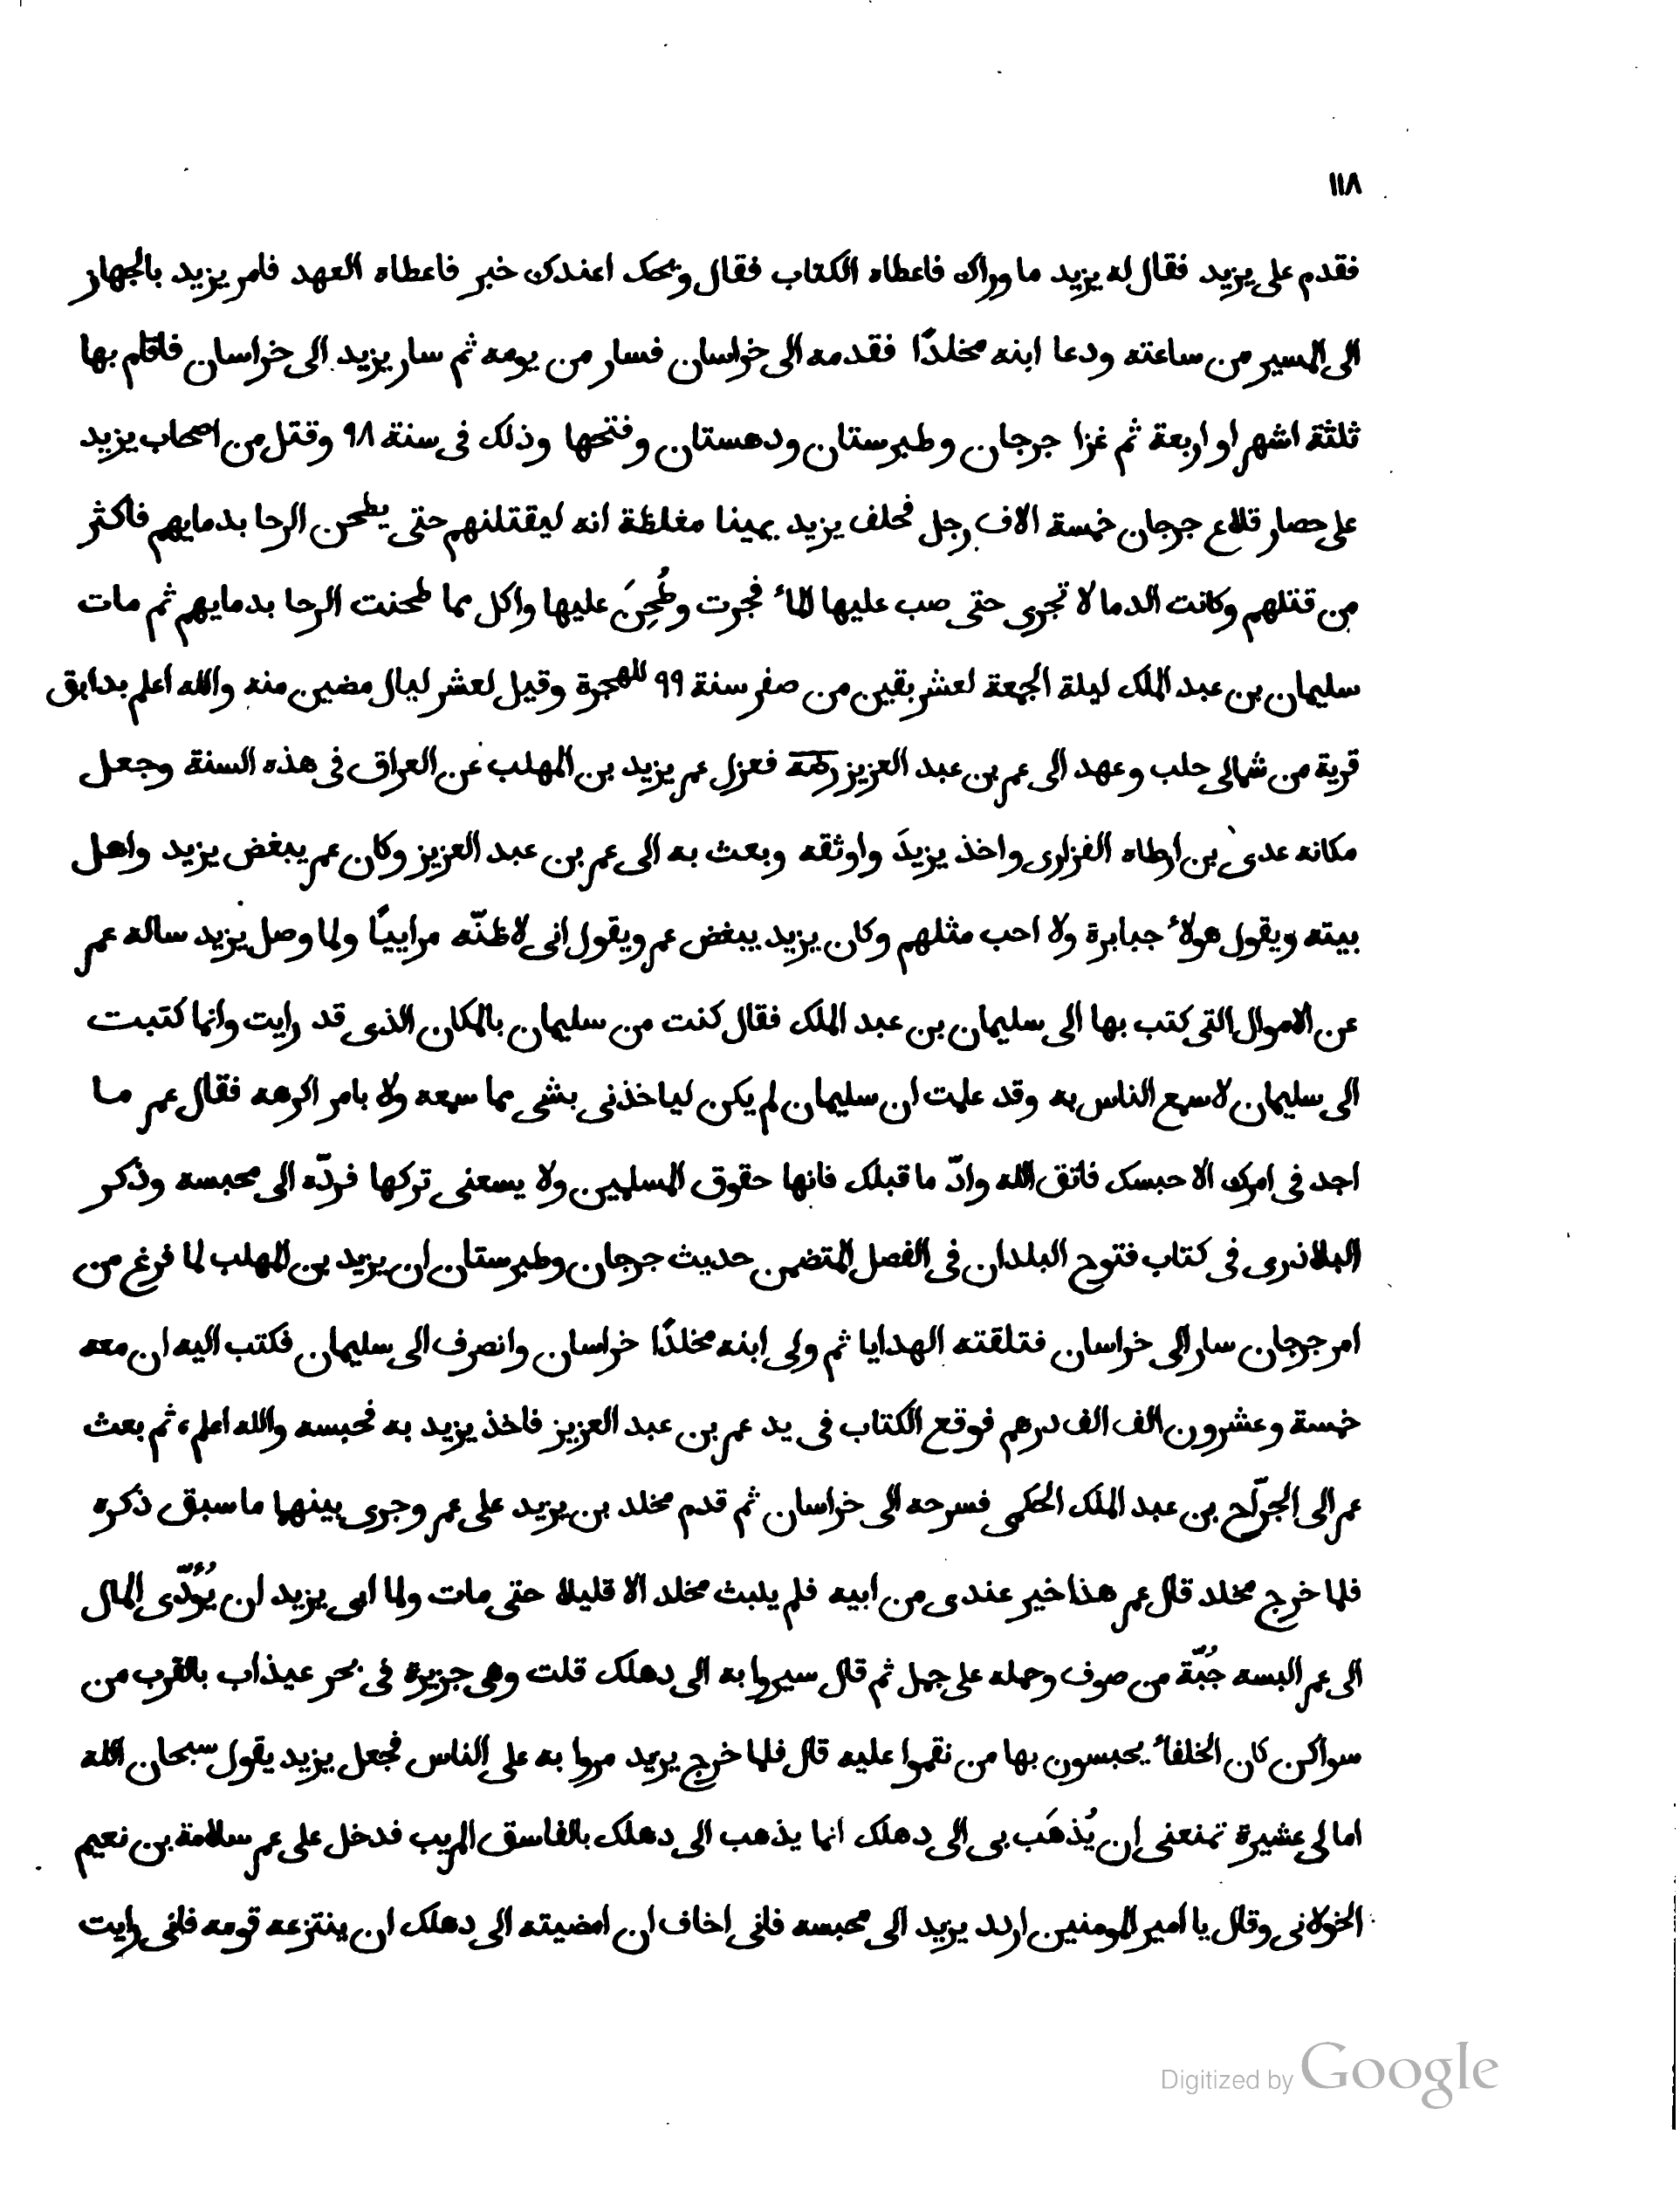 ١١٨
فقدم على يزيد فقال له يزيد ما وراك فاعطاه الكتاب فقال ويحك اعندك خبر فاعطاه العهد فامر يزيد بالجهاز
الى المسير من ساعته ودعا ابنه مخلدًا فقدمه الى خراسان فسار من يومه ثم سار يزيد الى خراسان فاقام بها
ثلثة اشهر او اربعة ثم غزا جرجان وطبرستان ودهستان وفتحها وذلك فى سنة ٩٨ وقتل من اصحاب يزيد
على حصار قلاع جرجان خمسة الاف رجل فحلف يزيد يمينا مغلظة انه ليقتلنهم حتى يطحن الرحا بدمايهم فاكثر
من قتلهم وكانت الدما لا تجرى حتى صب عليها الماء فجرت وطُحِنَ عليها واكل مما طحنت الرحا بدمايهم ثم مات
سليمان بن عبد الملك ليلة الجمعة لعشر بقين من صفر سنة ٩٩ للهجرة وقيل لعشر ليال مضين منه والله اعلم بدابق
قرية من شمالى حلب وعهد الى عمر بن عبد العزيز رحمه فعزل عمر يزيد بن المهلب عن العراق فى هذه السنة وجعل
مكانه عدى بن ارطاه الفزارى واخذ يزيدَ واوثقه وبعث به الى عمر بن عبد العزيز وكان عمر يبغض يزيد واهل
بيته ويقول هولاء جبابرة ولا احب مثلهم وكان يزيد يبغض عمر ويقول انى لاظنّه مراييًا ولما وصل يزيد ساله عمر
عن الاموال التى كتب بها الى سليمان بن عبد الملك فقال كنت من سليمان بالمكان الذى قد رايت وانما كتبت
الى سليمان لاسمع الناس به وقد علمت ان سليمان لم يكن لياخذنى بشى مما سمعه ولا بامر اكرهه فقال عمر ما
اجد فى امرك الا حبسك فاتق الله وادّ ما قبلك فانها حقوق المسلمين ولا يسعنى تركها فردّه الى محبسه وذكر
البلاذرى فى كتاب فتوح البلدان فى الفصل المتضمن حديث جرجان وطبرستان ان يزيد بن المهلب لما فرغ من
امر جرجان سار الى خراسان فتلقته الهدايا ثم ولى ابنه مخلدًا خراسان وانصرف الى سليمان فكتب اليه ان معه
خمسة وعشرون الف الف درهم فوقع الكتاب فى يد عمر بن عبد العزيز فاخذ يزيد به فحبسه والله اعلم، ثم بعث
عمر الى الجرّاح بن عبد الملك الحكمى فسرحه الى خراسان ثم قدم مخلد بن يزيد على عمر وجرى بينهما ما سبق ذكره
فلما خرج مخلد قال عمر هذا خير عندى من ابيه فلم يلبث مخلد الا قليلا حتى مات ولما ابى يزيد ان يُؤَدّى المال
الى عمر البسه جُبّة من صوف وحمله على جمل ثم قال سيروا به الى دهلك قلت وهى جزيرة فى بحر عيذاب بالقرب من
سواكن كان الخلفاء يحبسون بها من نقموا عليه قال فلما خرج يزيد مروا به على الناس فجعل يزيد يقول سبحان الله
اما لى عشيرة تمنعنى ان يُذهَب بى الى دهلك انما يذهب الى دهلك بالفاسق المريب فدخل على عمر سلامة بن نعيم
الخولانى وقال يا امير المومنين اردد يزيد الى محبسه فانى اخاف ان امضيته الى دهلك ان ينتزعه قومه فانى رايت
Digitized by Google